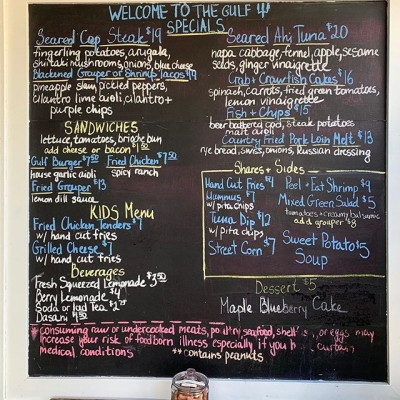 WELCOME TO THE GULF
SPECIALS
Seared Cap Steak $19
fingerling potatoes, arugula,
shiitaki mushrooms, onions, blue cheese
Blackened Grouper or Shrimp Tacos $19
pineapple slaw, pickled peppers,
cilantro lime aioli, cilantro +
purple chips
SANDWICHES
lettuce, tomatoes, brioche bun
add cheese or bacon $1
Gulf Burger $7.50 Fried Chicken $7.50
house garlic aioli spicy ranch
Fried Grouper $13
lemon dill sauce
KIDS Menu
Fried Chicken Tenders $7
w/ hand cut fries
Grilled Cheese $7
w/ hand cut fries
Beverages
Fresh Squeezed Lemonade $3.50
Berry Lemonade $4
Soda or Iced Tea $2.75
Dasani $1.50
Seared Ahi Tuna $20
napa cabbage, fennel, apple, sesame
seeds, ginger vinaigrette
Crab + Crawfish Cakes $16
spinach, carrots, fried green tomatoes,
lemon vinaigrette
Fish + Chips $15
beer battered cod, steak potatoes
malt aioli
Country Fried Pork Loin Melt $13
rye bread, swiss, onions, Russian dressing
Shares + Sides
Hand Cut Fries $4
Hummus $7
w/ pita chips
Tuna Dip $12
w/ pita chips
Street Corn $7
Peel + Eat Shrimp $9
Mixed Green Salad $5
tomatoes + creamy balsamic
add grouper $8
Sweet Potato $5
Soup
Dessert $5
Maple Blueberry Cake
*consuming raw or undercooked meats, poultry, seafood, or eggs may
Increase your risk of foodborn illness especially if you
Medical conditions **contains peanuts